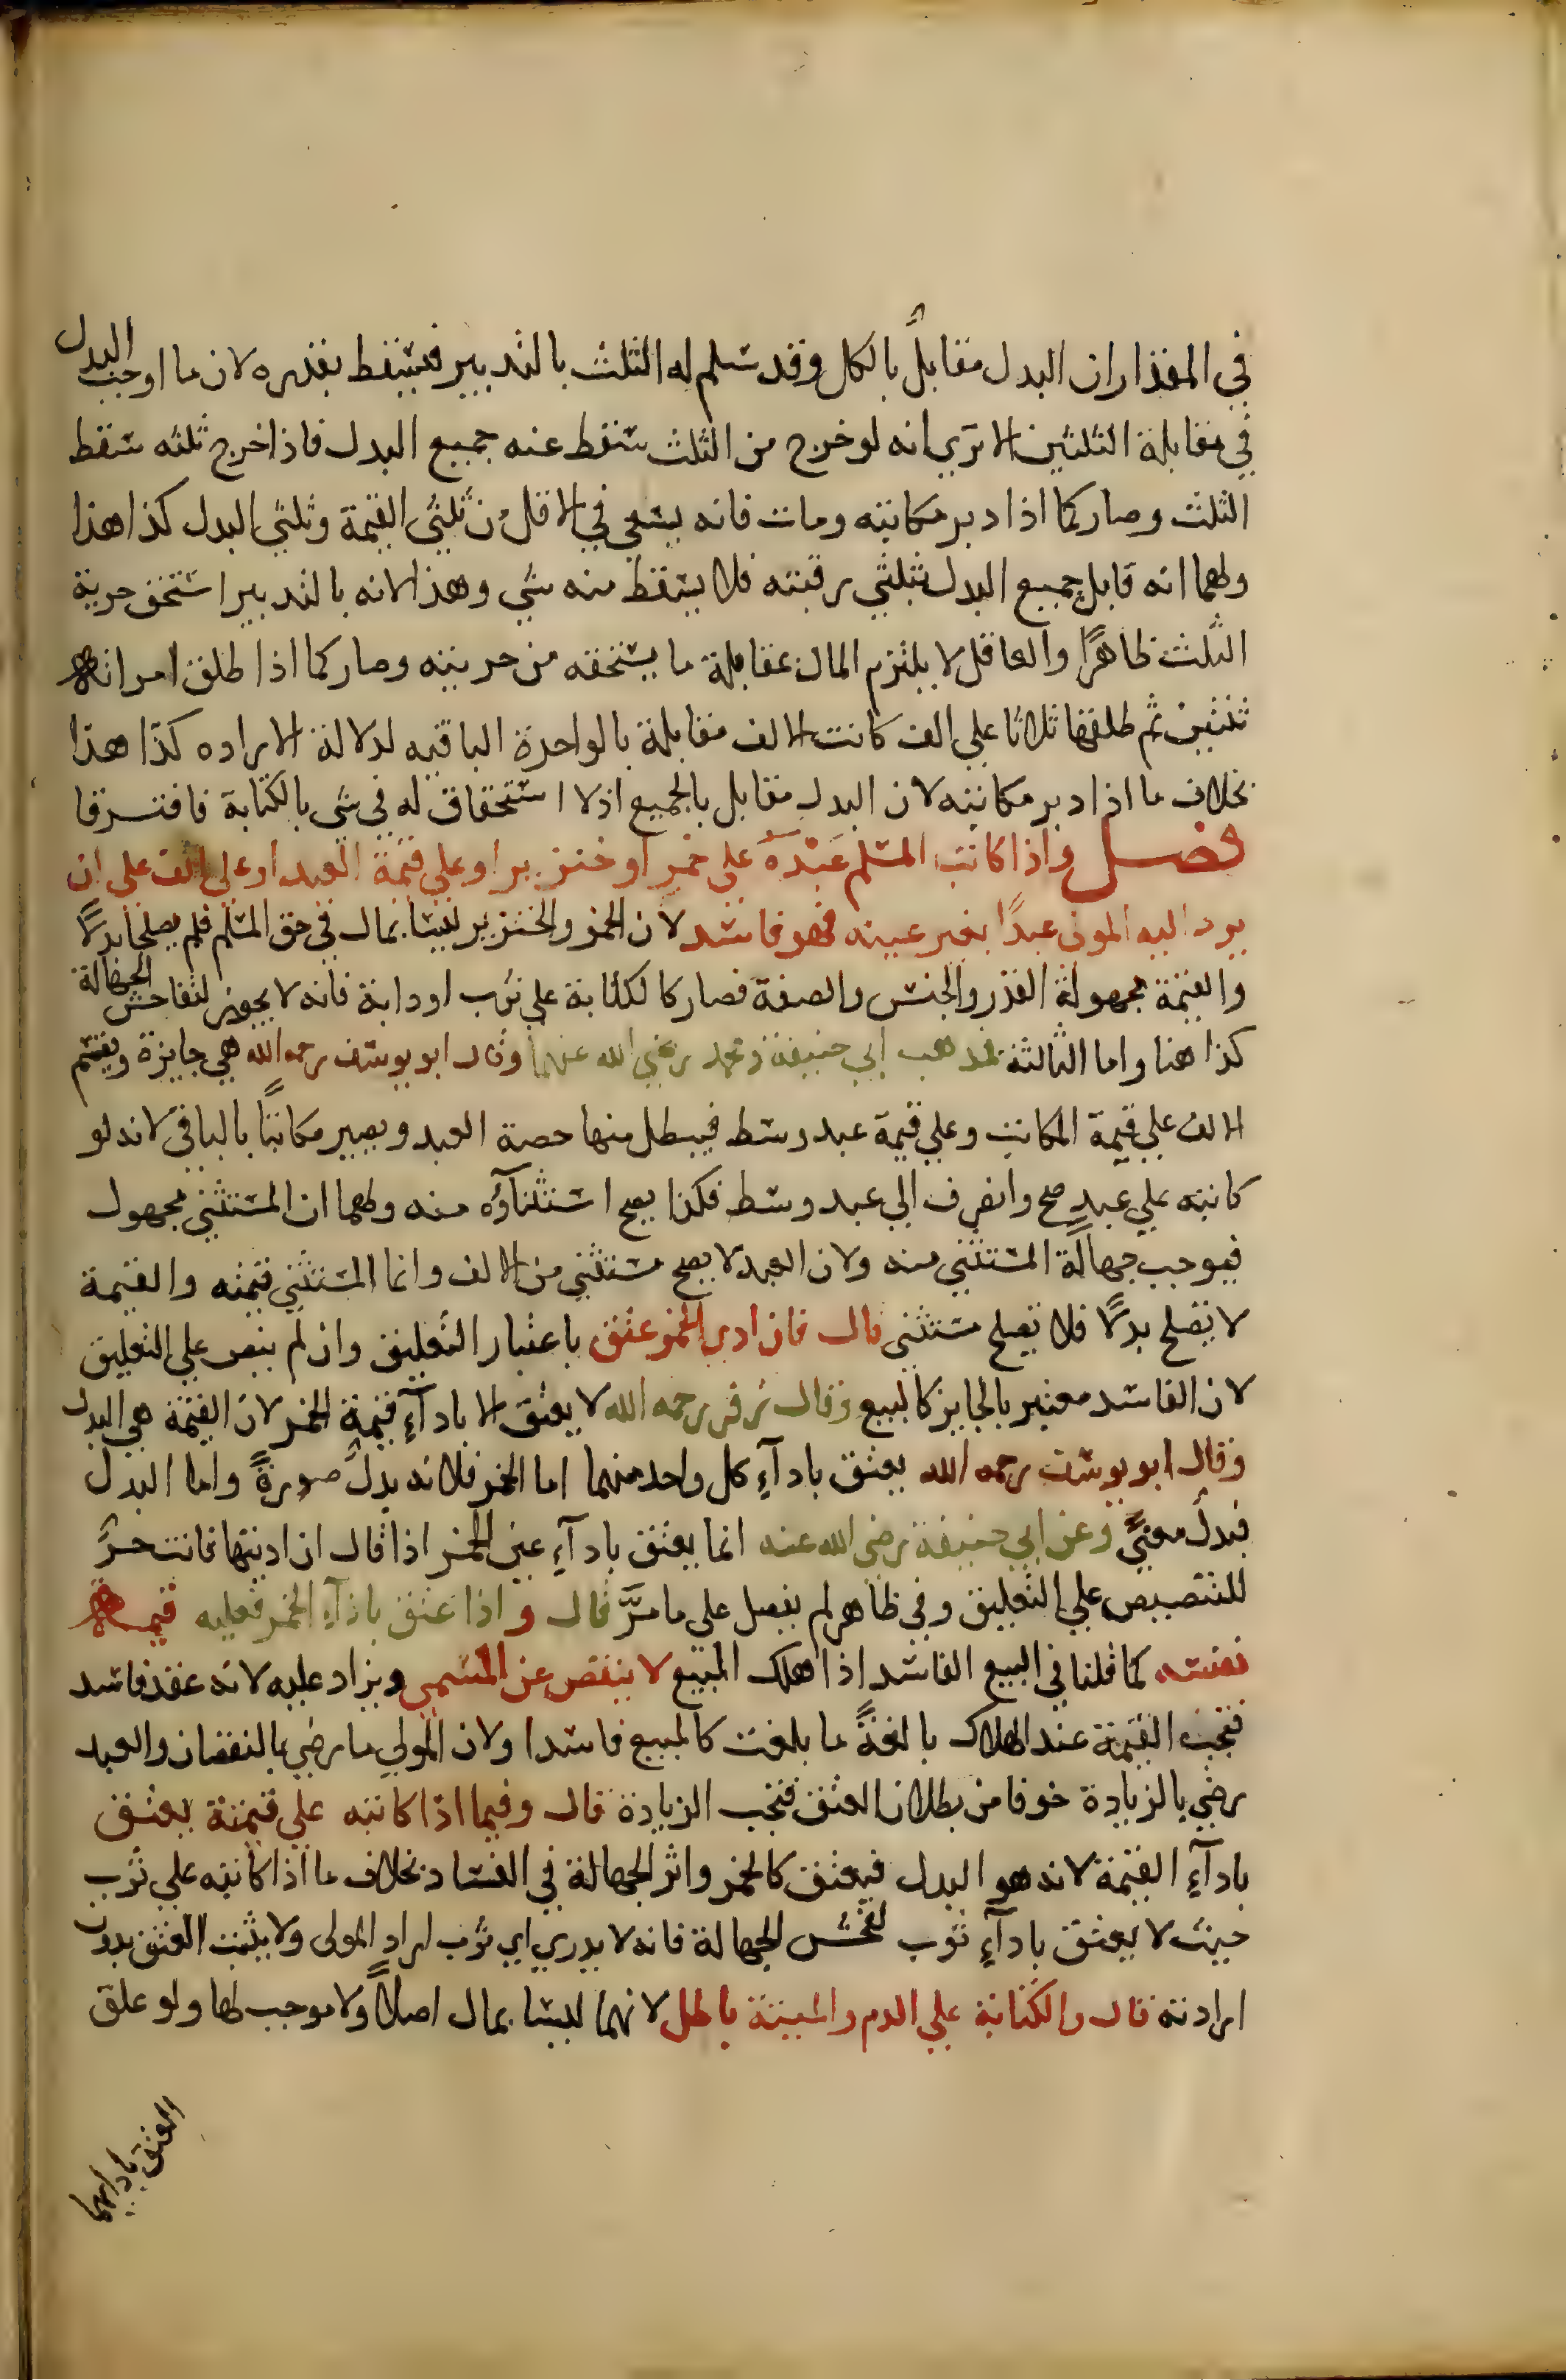 في المقدار ان البدل مقابلٌ بالكل وقد سلم له الثلث بالتدبير فيسقط بقدره لان ما اوجب البدل
في مقابلة الثلثين الا تري انه لو خرج من الثلث سقط عنه جميع البدل فاذا خرج ثلثه سقط
الثلث وصار كما اذا دبر مكاتبه ومات فانه يسعي في الاقل من ثلثي القيمة وثلثي البدل كذا هذا
ولهما انه قابل جميع البدل بثلثي رقبته فلا يسقط منه شي وهذا لانه بالتدبير استحق حرية
الثلث ظاهرًا والعاقل لا يلتزم المال بمقابلة ما يستحقه من حريته وصار كما اذا طلق امراته
ثنتين ثم طلقها ثلاثا علي الف كانت الالف مقابلة بالواحدة الباقيه لدلالة الاراده كذا هذا
بخلاف ما اذا دبر مكاتبه لان البدل مقابل بالجميع اذ لا استحقاق له في شي بالكتابة فافترقا
فصل واذا كاتب المسلم عبده علي خمر او خنزير او علي قيمة العبد او علي الف علي ان
يرد اليه المولي عبدًا بغير عينه فهو فاسد لان الخمر والخنزير ليسا بمال في حق المسلم فلم يصلحا بدلًا
والقيمة مجهولة القدر والجنس والصفة فصار كالكتابة علي ثوب او دابة فانه لا يجوز لتفاحش الجهالة
كذا هنا واما الثالثة فمذهب ابي حنيفة ومحمد رضي الله عنهما وقال ابو يوسف رحمه الله هي جايزة ويقسم
الالف علي قيمة المكاتب وعلي قيمة عبد وسط فيبطل منها حصة العبد ويصير مكاتبًا بالباقي لانه لو
كاتبه علي عبدٍ صح وانصرف الي عبد وسط فكذا يصح استثناؤه منه ولهما ان المستثني مجهول
فيوجب جهالة المستثني منه ولان العبد لا يصح مستثني من الالف وانما المستثني قيمته والقيمة
لا تصلح بدلًا فلا تصلح مستثنى قال فان ادي الخمر عتق باعتبار التعليق وان لم ينص علي التعليق
لان الفاسد معتبر بالجايز كالبيع وقال زفر رحمه الله لا يعتق الا باداء قيمة الخمر لان القيمة هي البدل
وقال ابو يوسف رحمه الله يعتق باداء كل واحد منهما اما الخمر فلانه بدلٌ صورةً واما البدل
فبدلٌ معنًي وعن ابي حنيفة رضي الله عنه انما يعتق باداء عين الخمر اذا قال ان اديتها فانت حرٌّ
للتنصيص علي التعليق وفي ظاهر لم يفصل على ما مرَّ قال واذا عتق باداء الخمر فعليه قيمة
نفسه كما قلنا في البيع الفاسد اذا هلك المبيع لا ينقص عن المسمي ويزاد عليه لانه عقد فاسد
فتجب القيمة عند الهلاك بالغةً ما بلغت كالمبيع فاسدا ولان المولي ما رضي بالنقصان والعبد
رضي بالزيادة خوفا من بطلان العتق فتجب الزيادة قال وفيما اذا كاتبه علي قيمته يعتق
باداء القيمة لانه هو البدل فيعتق كالخمر واثر الجهالة في الفساد بخلاف ما اذا كاتبه علي ثوب
حيث لا يعتق باداء ثوب لفحش الجهالة فانه لا يدري اي ثوب اراد المولى ولا يثبت العتق بدون
ارادته قال والكتابة علي الدم والميتة باطل لانهما ليسا بمال اصلًا ولا موجب لها ولو علق
العتق بادايهما